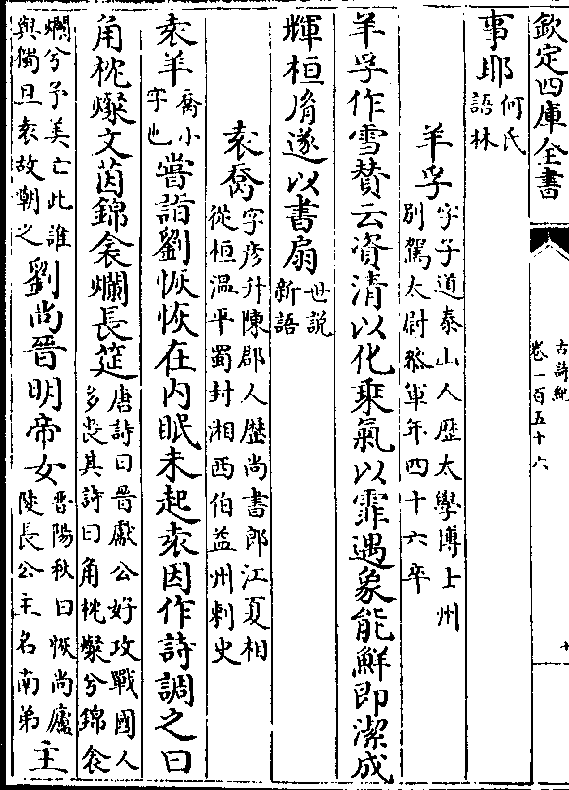 欽定四庫全書
古詩紀
卷一百五十六
十
事耶何氏
語林
羊孚字子道泰山人歷太學博士州
別駕太尉叅軍年四十六卒
羊孚作雪贊云資清以化乗氣以霏遇象能鮮即潔成
輝桓𦙍遂以書扇世說
新語
袁喬字彦升陳郡人歴尚書郎江夏相
從桓溫平蜀封湘西伯益州刺史
袁羊喬小
字也嘗詣劉恢恢在内眠未起袁因作詩調之曰
角枕燦文茵錦衾爛長筵唐詩曰晉獻公好攻戰國人
多喪其詩曰角枕燦兮錦衾
爛兮予美亡此誰
與獨旦袁故嘲之劉尚晉明帝女晉陽秋曰恢尚廬
陵長公主名南弟主